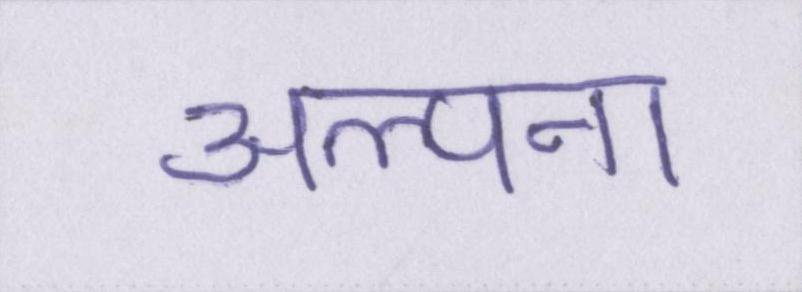 अल्पना